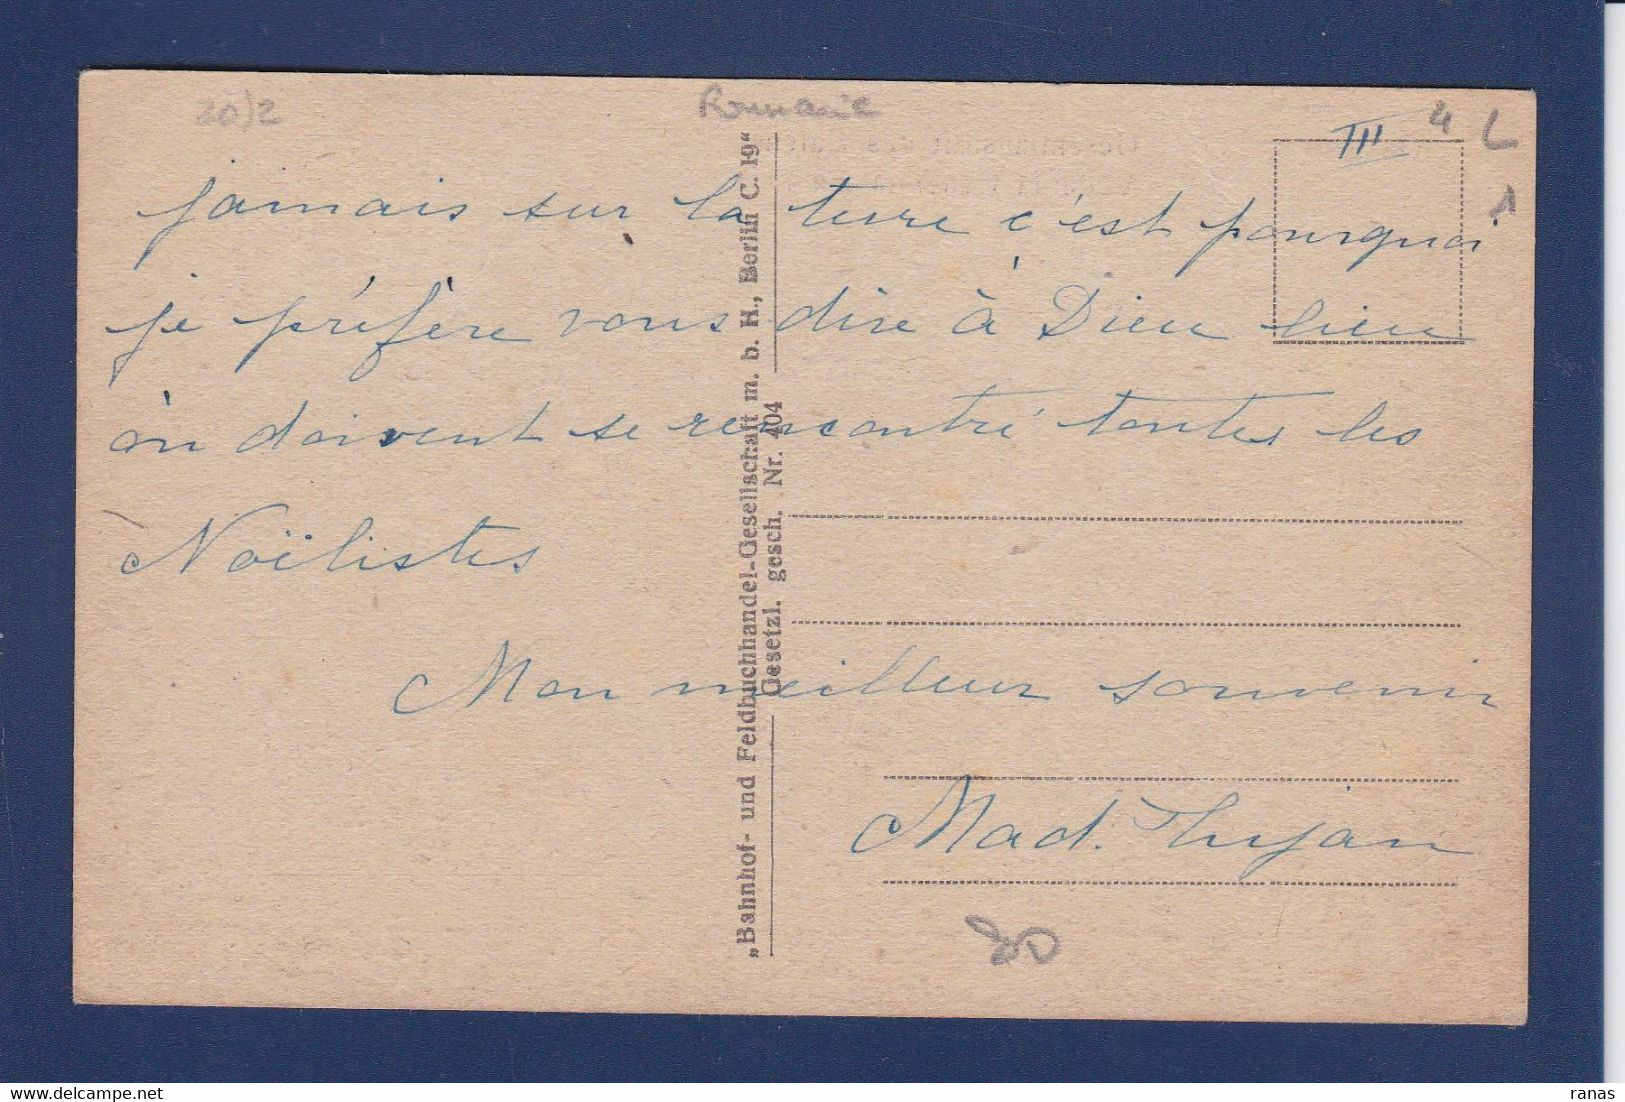 20)2
Roumanie
III
4 L
1
jamais sur la terre c'est pourquoi
je préfère vous dire à Dieu lieu
où doivent se rencontré toutes les
Noëlistes
Mon meilleur souvenir
Mad. Thujan
„Bahnhof- und Feldbuchhandel-Gesellschaft m. b. H., Berlin C. 19“
Gesetzl. gesch. Nr. 404
ranas